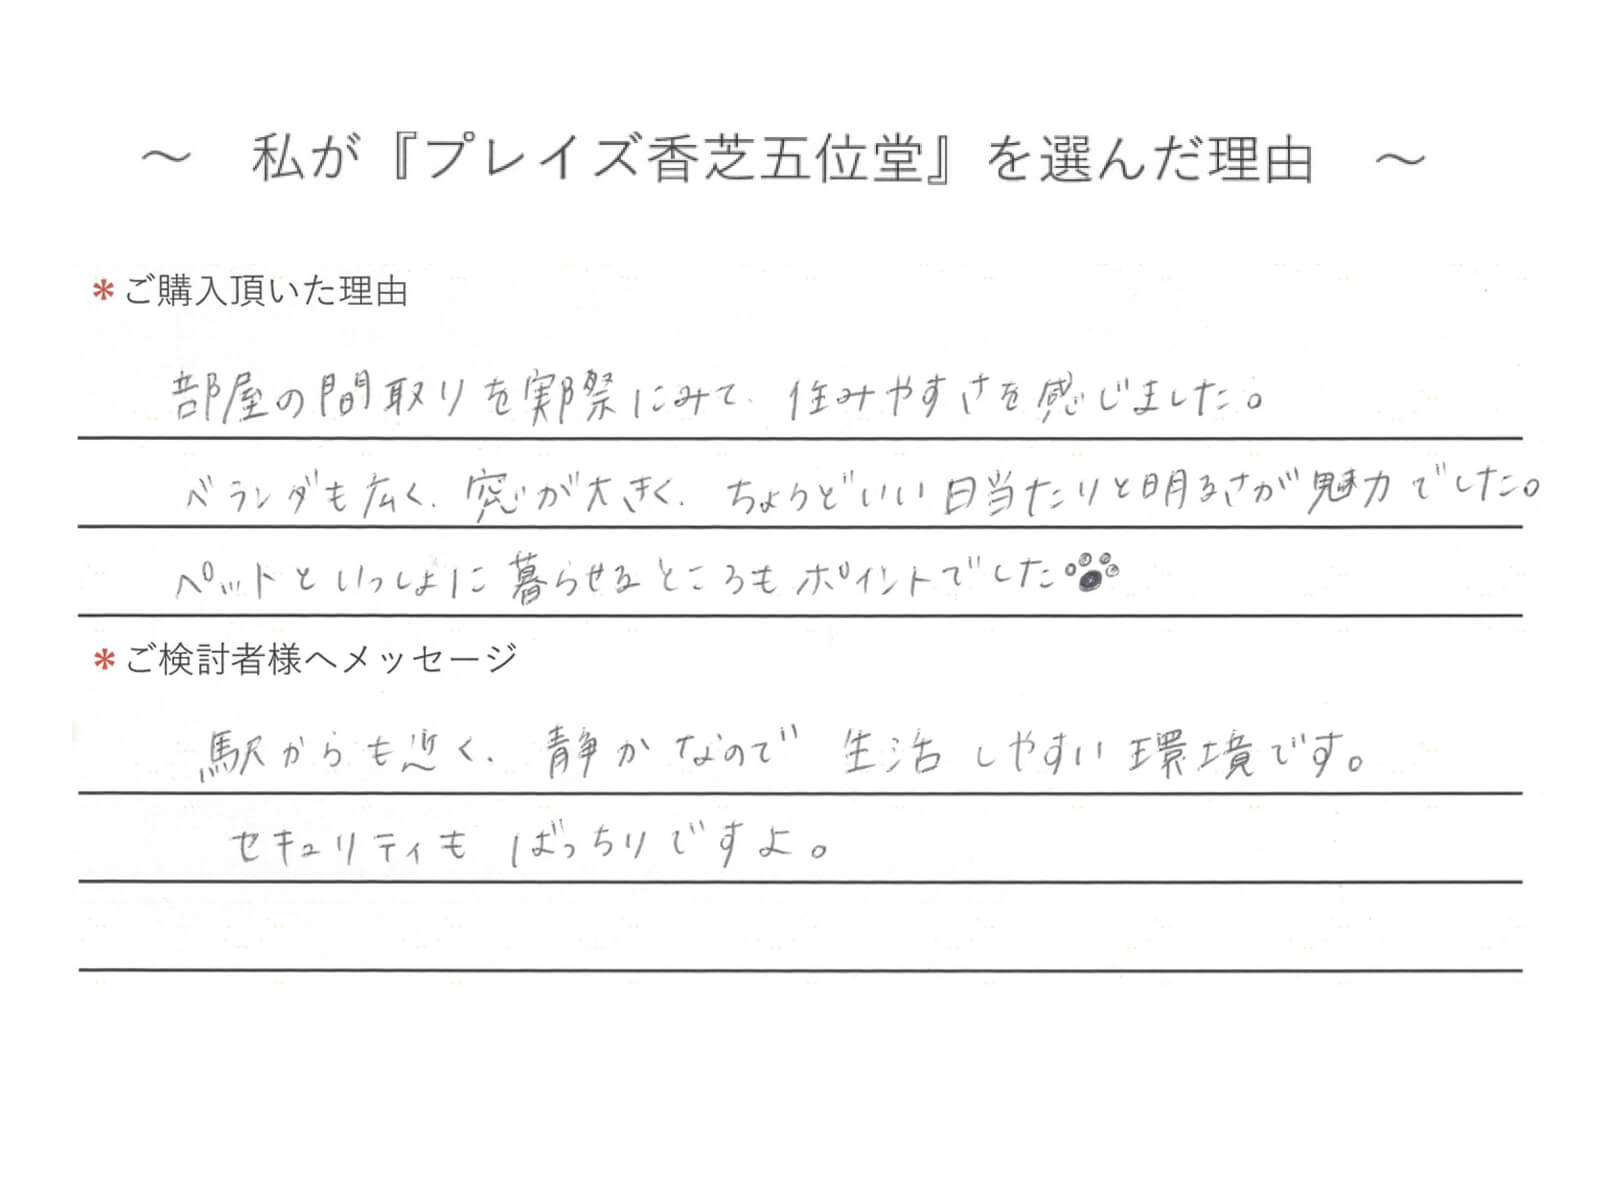 ～　私が『プレイズ香芝五位堂』を選んだ理由　～
*ご購入頂いた理由
部屋の間取りを実際にみて、住みやすさを感じました。
ベランダも広く、窓が大きく、ちょうどいい日当たりと明るさが魅力でした。
ペットといっしょに暮らせるところもポイントでした
*ご検討者様へメッセージ
駅からも近く、静かなので 生活しやすい環境です。
セキュリティも ばっちりですよ。